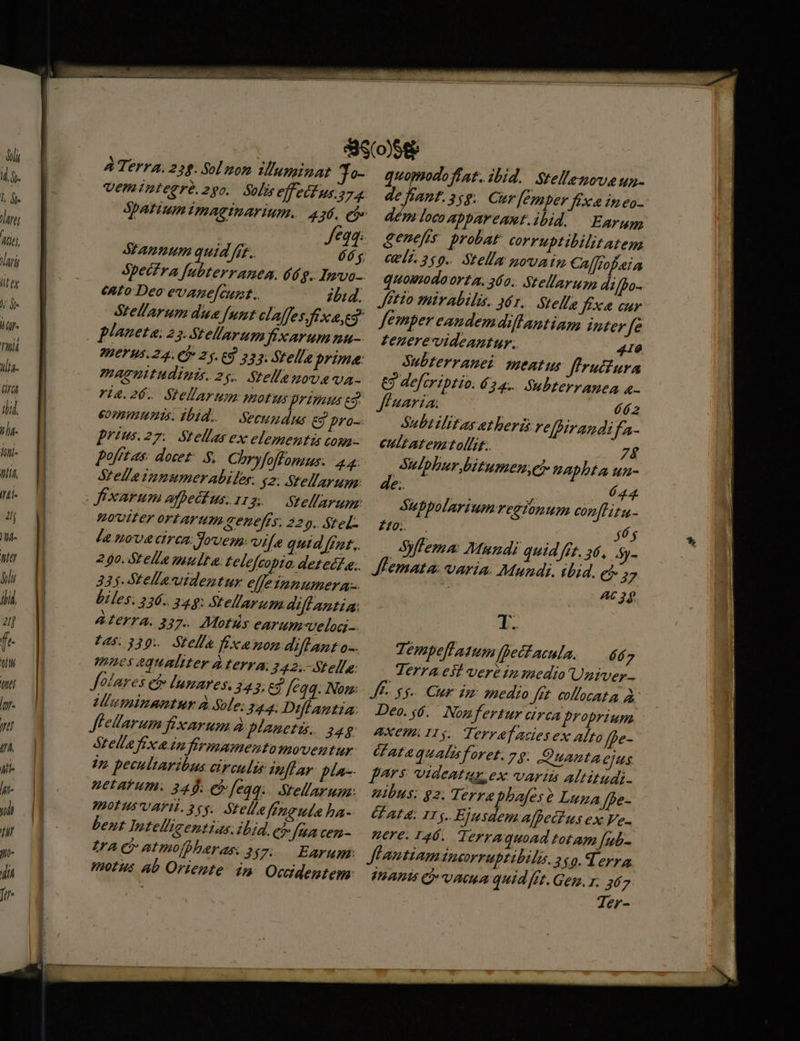 à Terra. 238. Sol non illuminat Jo-
vem integrè. 290. Solis effectus. 374
Spatium imaginarium. 436. &
seqq.
Stannum quid sit. 665
Spectra subterranea. 669. Invo-
cato Deo evanescunt. ibid.
Stellarum duæ sunt classes, fixæ, &
planetæ. 23. Stellarum fixarum nu-
merus. 24. & 25. & 333. Stellæ primæ
magnitudinis. 25. Stella nova va-
ria. 26. Stellarum motus primus &
communis. ibid. Secundus & pro-
prius. 27. Stellas ex elementis com-
positas docet S. Chrysostomus. 44.
Stellæ innumerabiles. 52. Stellarum
fixarum aspectus. 113. Stellarum
noviter ortarum genesis. 229. Stel-
læ novæ circa Jovem visæ quid sint.
290. Stellæ multæ telescopio detectæ.
335. Stellæ videntur esse innumera-
biles. 336. 348. Stellarum distantia
à terra. 337. Motûs earum veloci-
tas. 339. Stellæ fixæ non distant o-
mnes æqualiter à terra. 342. Stellæ
solares & lunares. 343. & seqq. Non
illuminantur à Sole. 344. Distantia
stellarum fixarum à planetis. 348
Stellæ fixæ in firmamento moventur
in peculiaribus circulis instar pla-
netarum. 349. & seqq. Stellarum
motus varii. 355. Stellæ singulæ ha-
bent Intelligentias. ibid. & sua cen-
tra & atmosphæras. 357. Earum
motus ab Oriente in Occidentem
quomodo fiat. ibid. Stellæ novæ un-
de fiant. 358. Cur semper fixæ in eo-
dem loco appareant. ibid. Earum
genesis probat corruptibilitatem
cæli. 359. Stella nova in Cassiopæia
quomodo orta. 360. Stellarum dispo-
sitio mirabilis. 361. Stellæ fixæ cur
semper eandem distantiam inter se
tenere videantur. 410
Subterranei meatus structura
& descriptio. 634. Subterranea æ-
stuaria. 662
Subtilitas ætheris respirandi fa-
cultatem tollit. 78
Sulphur, bitumen, & naphta un-
de. 644
Suppolarium regionum constitu-
tio. 565
Systema Mundi quid sit. 36. Sy-
stemata varia Mundi. ibid. & 37
ac 38
T.
Tempestatum spectacula. 667
Terra est verè in medio Univer-
si. 55. Cur in medio sit collocata à
Deo. 56. Non fertur circa proprium
axem. 115. Terræ facies ex alto spe-
ctata qualis foret. 78. Quanta ejus
pars videatur ex variis altitudi-
nibus. 82. Terræ phases è Luna spe-
ctatæ. 115. Ejusdem aspectus ex Ve-
nere. 146. Terra quoad totam sub-
stantiam incorruptibilis. 359. Terra
inanis & vacua quid sit. Gen. 1. 367
Ter-